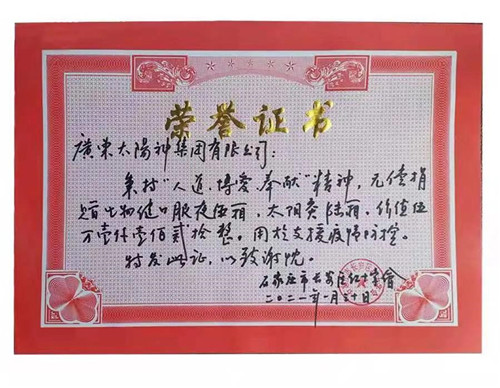 荣誉证书
廣东太陽神集团有限公司：
秉持“人道、博爱、奉献”精神，无偿捐
生物健口服液伍箱，太阳灸陆箱，价值伍
万壹仟壹佰贰拾整，用于支援疫情防控。
特发此证，以致谢忱。
石家庄市长安区红十字會
二〇二一年一月三十日